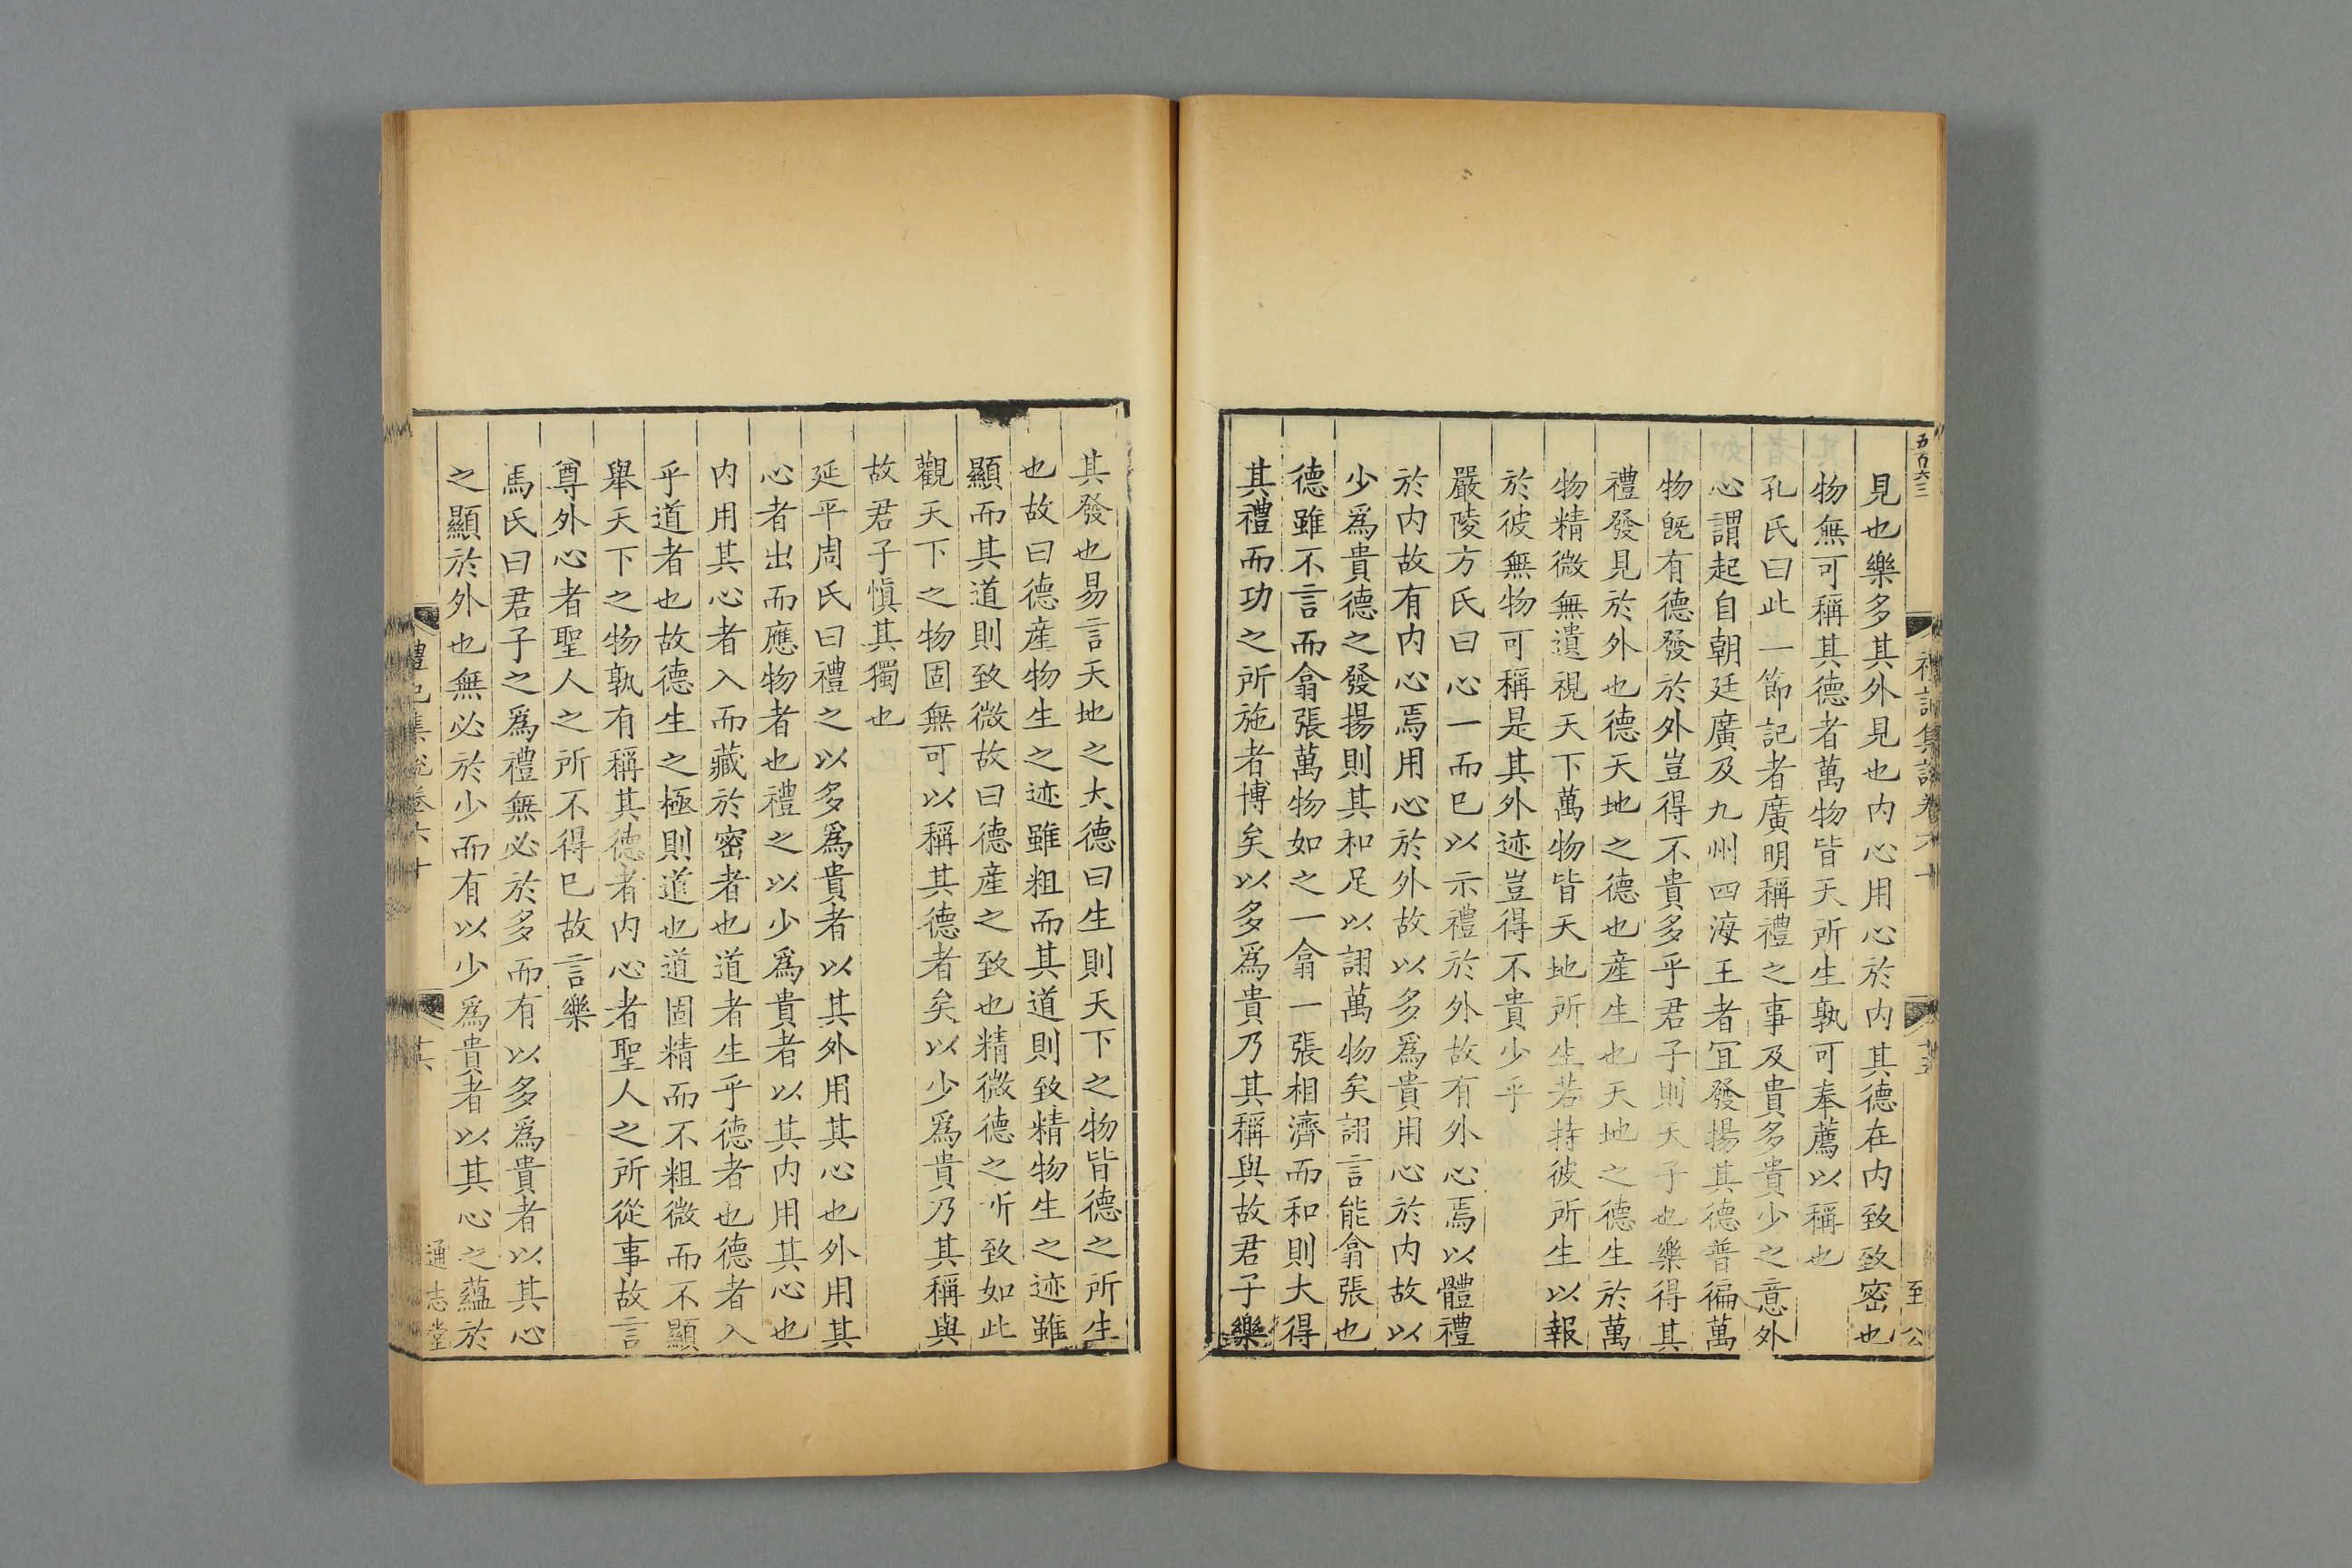 五百六三
禮記集說卷六十
十五
至公
見也樂多其外見也内心用心於内其德在内致致密也
物無可稱其德者萬物皆天所生孰可奉薦以稱也
孔氏曰此一節記者廣明稱禮之事及貴多貴少之意外
心謂起自朝廷廣及九州四海王者宜發揚其德普徧萬
物旣有德發於外豈得不貴多乎君子則天子也樂得其
禮發見於外也德天地之德也產生也天地之德生於萬
物精微無遺視天下萬物皆天地所生若持彼所生以報
於彼無物可稱是其外迹豈得不貴少乎
嚴陵方氏曰心一而已以示禮於外故有外心焉以體禮
於内故有内心焉用心於外故以多爲貴用心於内故以
少爲貴德之發揚則其和足以詡萬物矣詡言能翕張也
德雖不言而翕張萬物如之一翕一張相濟而和則大得
其禮而功之所施者博矣以多爲貴乃其稱與故君子樂
其發也易言天地之大德曰生則天下之物皆德之所生
也故曰德產物生之迹雖粗而其道則致精物生之迹雖
顯而其道則致微故曰德產之致也精微德之所致如此
觀天下之物固無可以稱其德者矣以少爲貴乃其稱與
故君子愼其獨也
延平周氏曰禮之以多爲貴者以其外用其心也外用其
心者出而應物者也禮之以少爲貴者以其内用其心也
内用其心者入而藏於密者也道者生乎德者也德者入
乎道者也故德生之極則道也道固精而不粗微而不顯
舉天下之物孰有稱其德者内心者聖人之所從事故言
尊外心者聖人之所不得已故言樂
馬氏曰君子之爲禮無必於多而有以多爲貴者以其心
之顯於外也無必於少而有以少爲貴者以其心之蘊於
禮記集說卷六十
通志堂